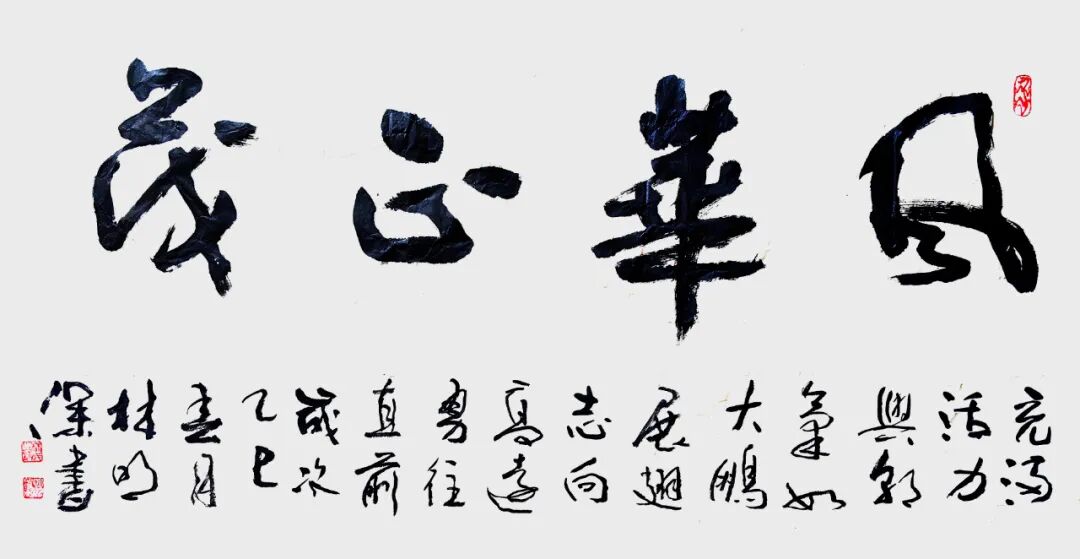 風華正茂
充滿
活力
與朝
氣如
大鵬
展翅
志向
高遠
勇往
直前
歲次
乙巳
春月
林明
保書